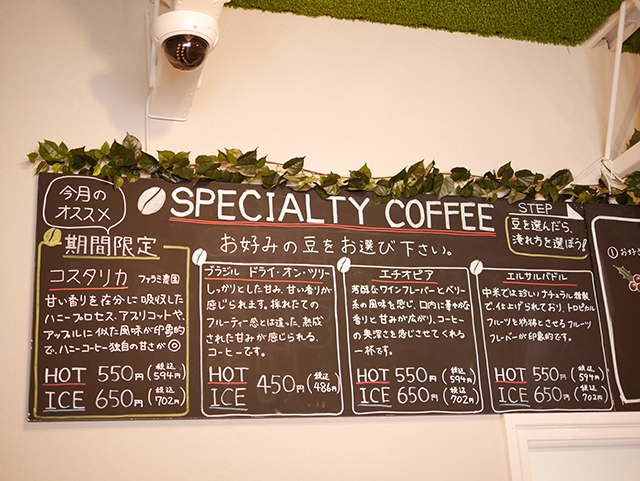 今月の
オススメ
SPECIALTY COFFEE
お好みの豆をお選び下さい。
STEP
豆を選んだら、
淹れ方を選ぼう!
期間限定
コスタリカ ファラミ農園
甘い香りを存分に吸収した
ハニープロセス。アプリコットや、
アップルに似た風味が印象的
で、ハニーコーヒー独自の甘さが◎
HOT 550円(税込594円)
ICE 650円(税込702円)
ブラジル ドライ・オン・ツリー
しっかりとした甘み、甘い香りが
感じられます。採れたての
フルーティー感とは違った、熟成
された甘みが感じられる、
コーヒーです。
HOT
ICE 450円(税込486円)
エチオピア
芳醇なワインフレーバーとベリー
系の風味を感じ、口内に華やかな
香りと甘みが広がり、コーヒー
の奥深さを感じさせてくれる
一杯です。
HOT 550円(税込594円)
ICE 650円(税込702円)
エルサルバドル
中米では珍しいナチュラル精製
で、仕上げられており、トロピカル
フルーツを彷彿とさせるフルーツ
フレーバーが印象的です。
HOT 550円(税込594円)
ICE 650円(税込702円)
①お好